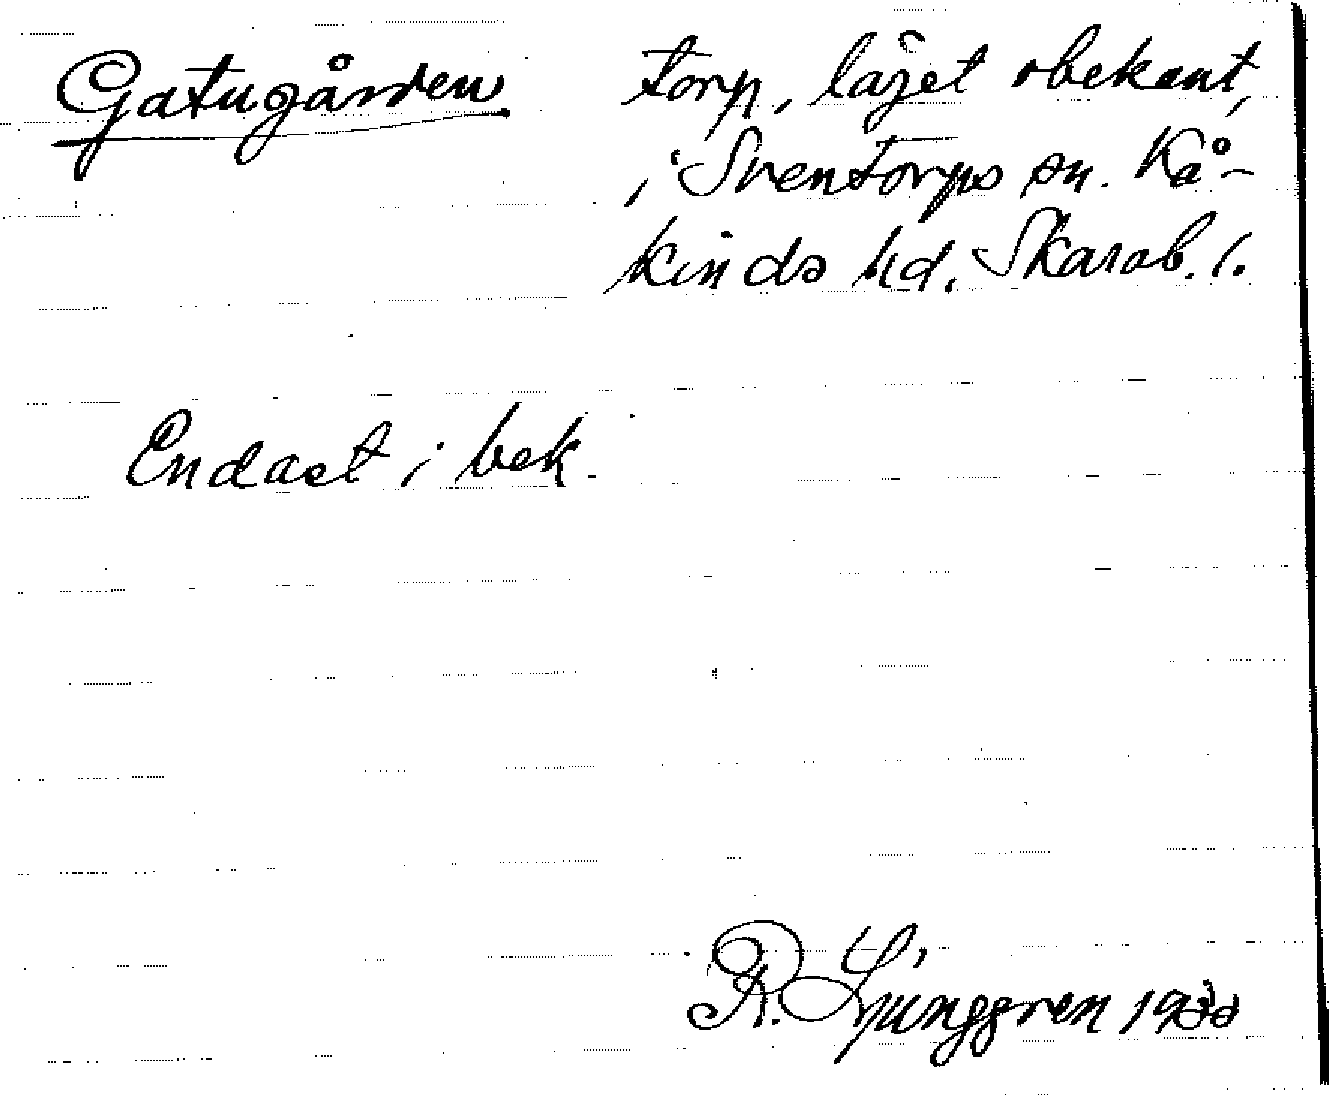 Gatugården.
torp, läget obekant,
i Sventorps sn. Kå-
kinds hd. Skarab. l.
Endast i bek.
R. Ljunggren